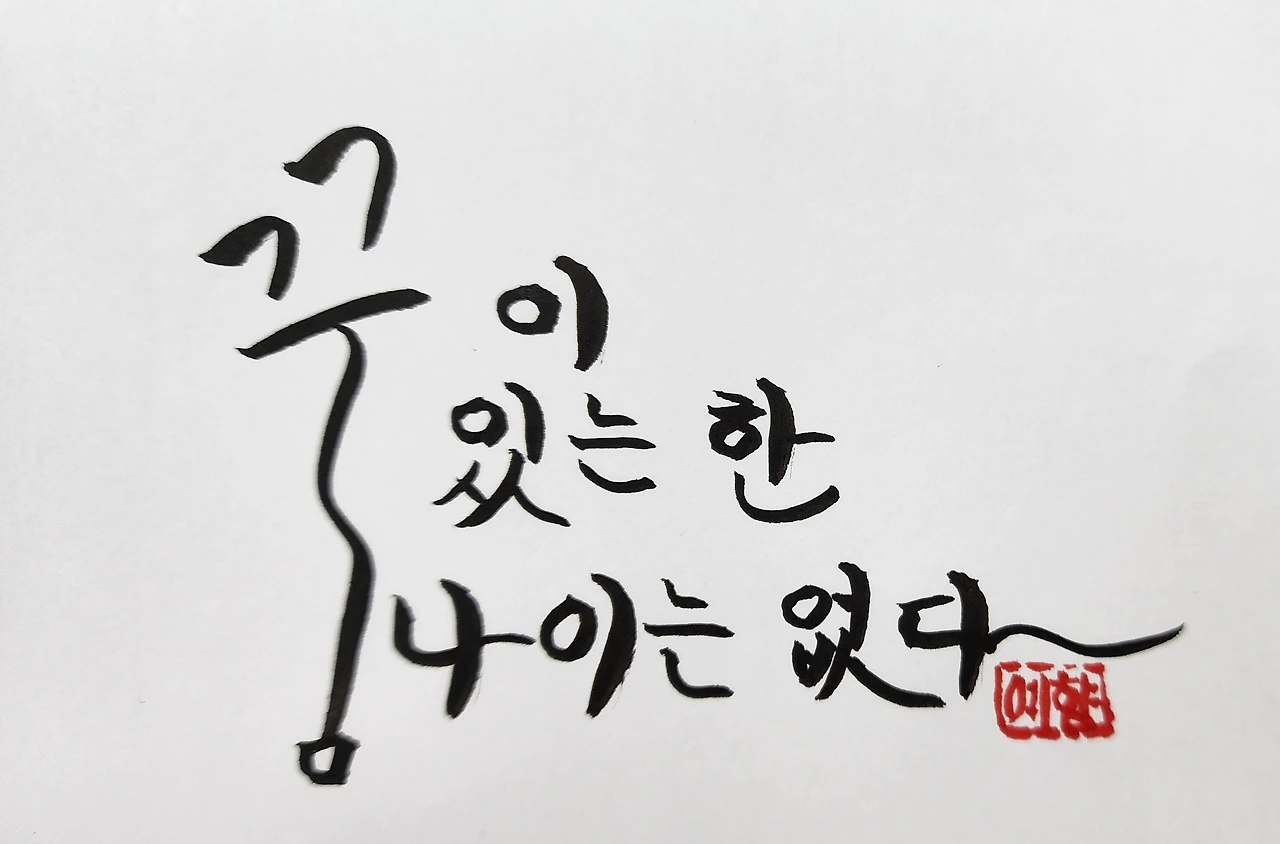 꿈이
있는 한
나이는 없다
예향